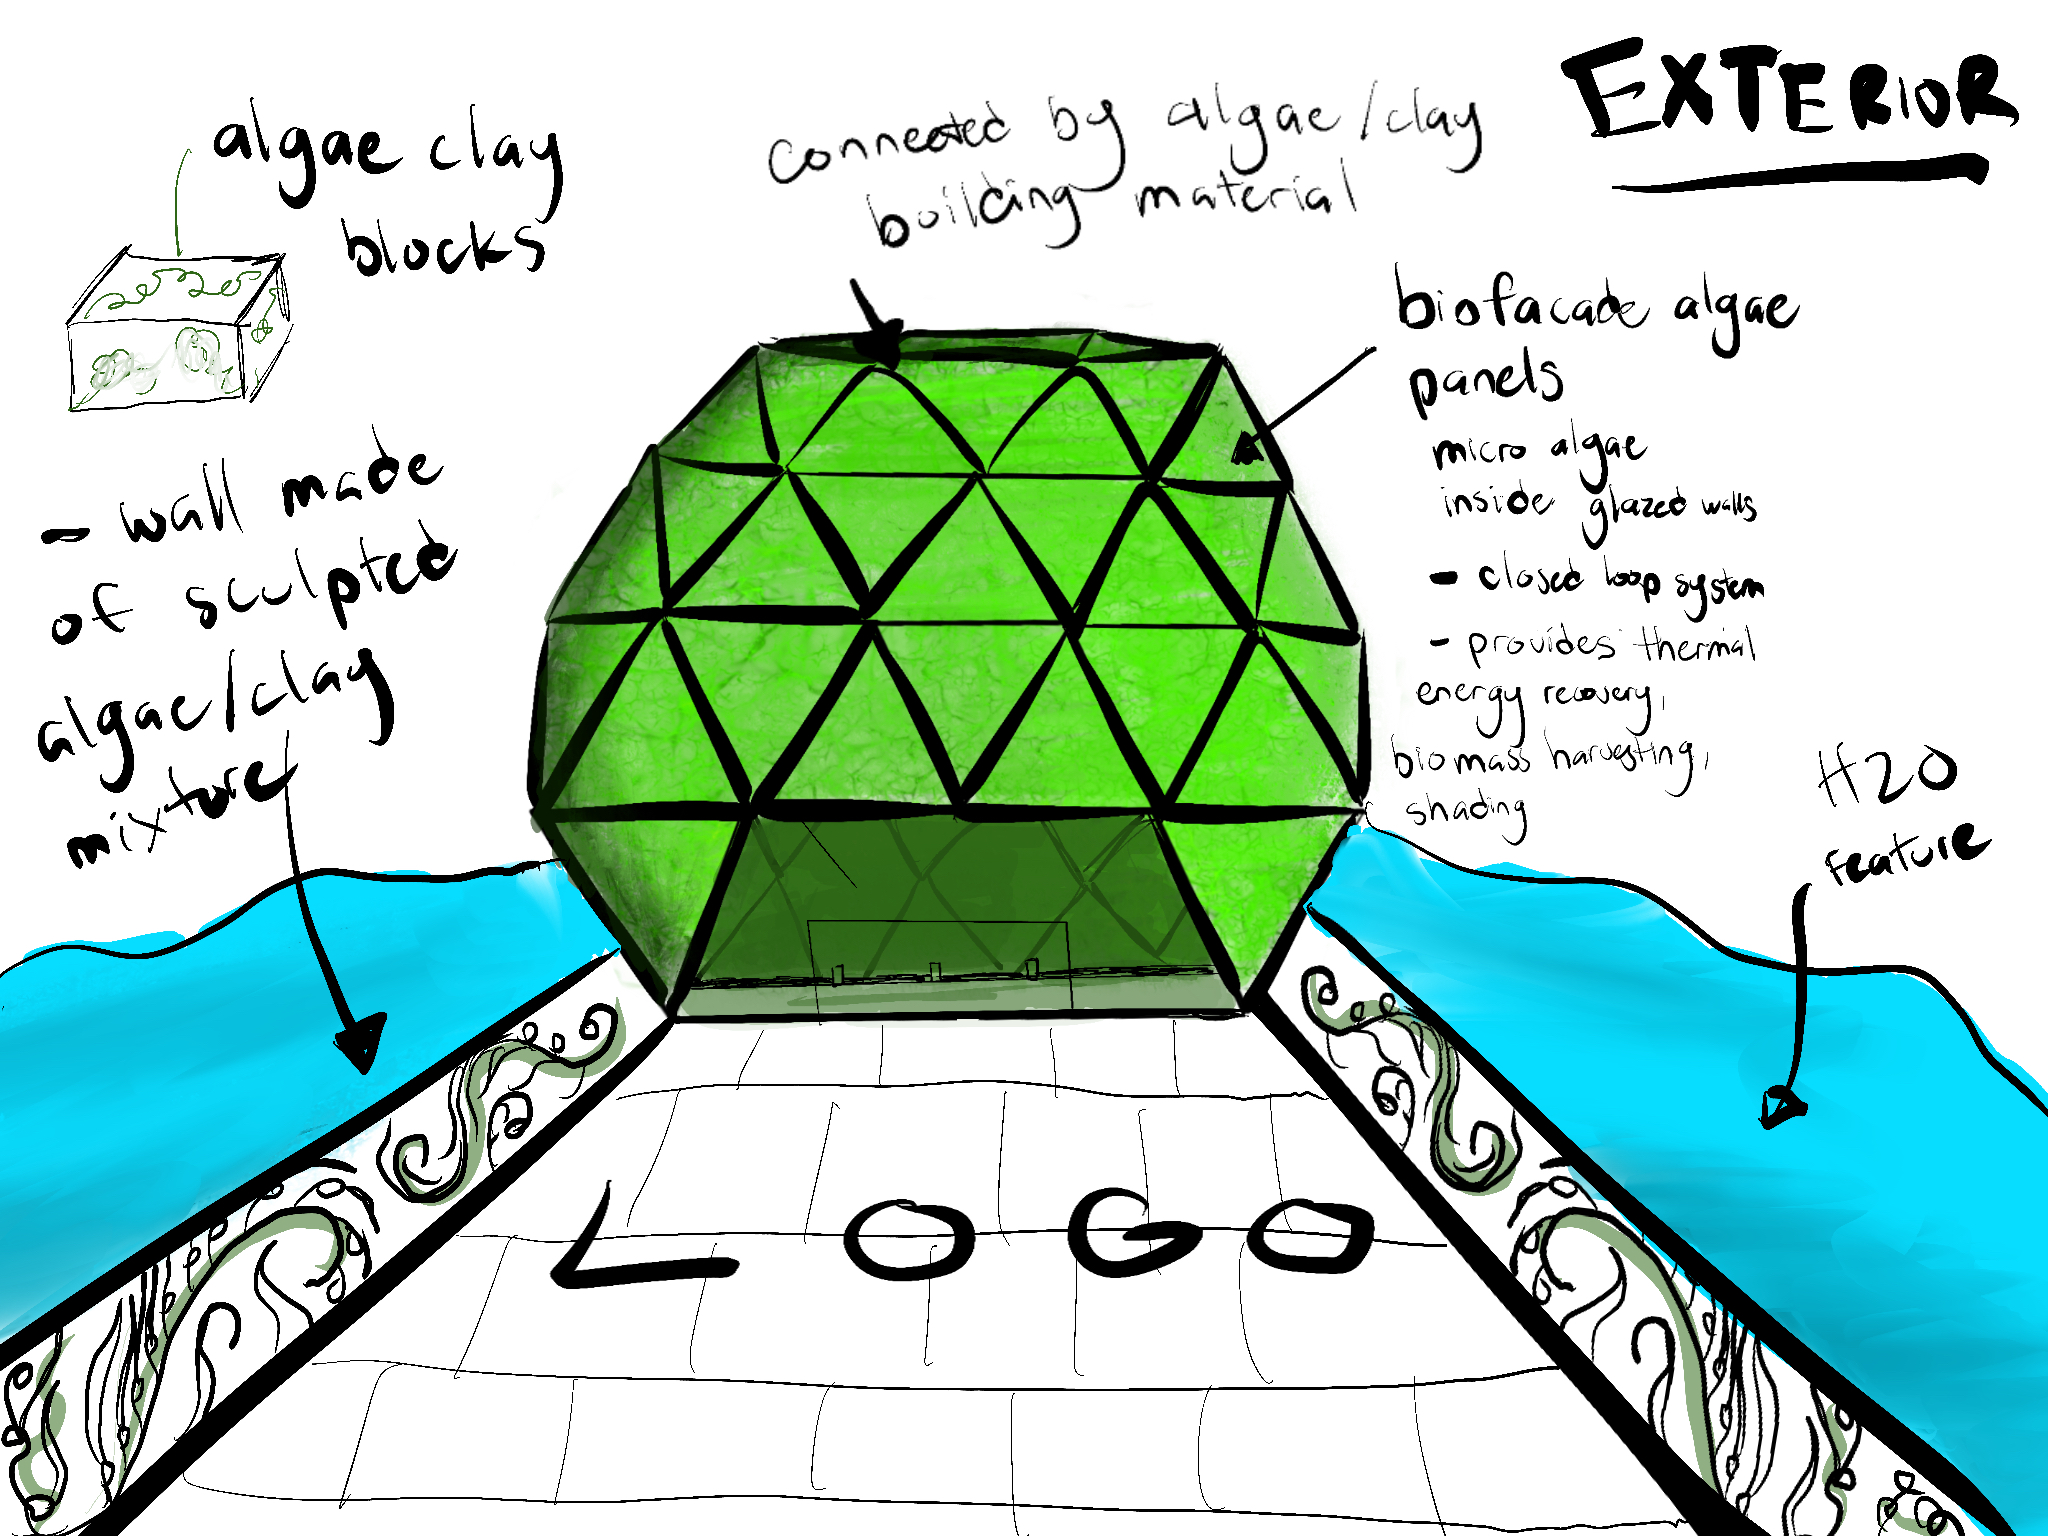 EXTERIOR
algae clay
blocks
connected by algae/clay
building material
biofacade algae
panels
micro algae
inside glazed walls
- closed loop system
- provides thermal
energy recovery,
biomass harvesting,
shading
- wall made
of sculpted
algae/clay
mixture
H2O
feature
LOGO